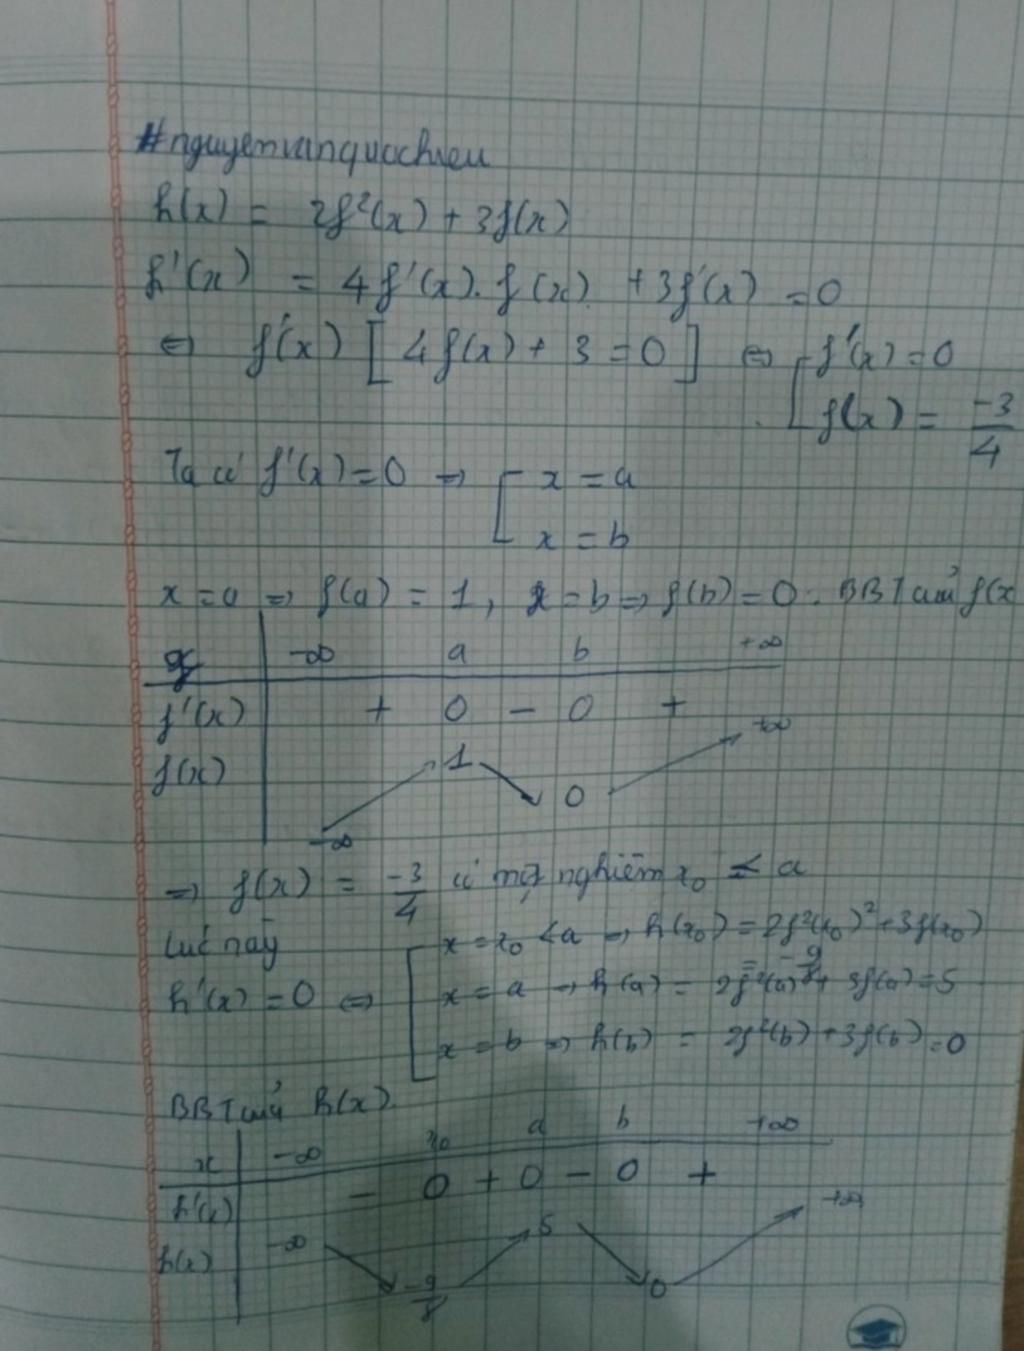 #nguyenvanquochieu
h(x) = 2f²(x) + 3f(x)
h'(x) = 4f'(x).f(x) + 3f'(x) = 0
⇔ f'(x) [4f(x) + 3 = 0] ⇔ [ f'(x) = 0
f(x) = -3/4
Ta có f'(x) = 0 ⇒ [ x = a
x = b
x = a ⇒ f(a) = 1, x = b ⇒ f(b) = 0. BBT của f(x
x -∞ a b +∞
f'(x) + 0 - 0 +
f(x) -∞ 1 0 +∞
⇒ f(x) = -3/4 có một nghiệm x₀ < a
Lúc này [ x = x₀ < a ⇒ h(x₀) = 2f²(x₀)² + 3f(x₀)
= -9/8
h'(x) = 0 ⇔ x = a ⇒ h(a) = 2f²(a) + 3f(a) = 5
x = b ⇒ h(b) = 2f²(b) + 3f(b) = 0
BBT của h(x)
x -∞ x₀ a b +∞
h'(x) - 0 + 0 - 0 +
h(x) -∞ -9/8 5 0 +∞